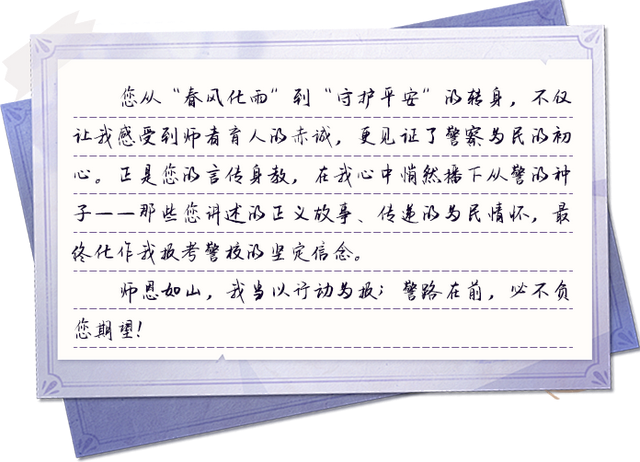 您从“春风化雨”到“守护平安”的转身，不仅
让我感受到师者育人的赤诚，更见证了警察为民的初
心。正是您的言传身教，在我心中悄然播下从警的种
子——那些您讲述的正义故事、传递的为民情怀，最
终化作我报考警校的坚定信念。
师恩如山，我当以行动为报；警路在前，必不负
您期望！